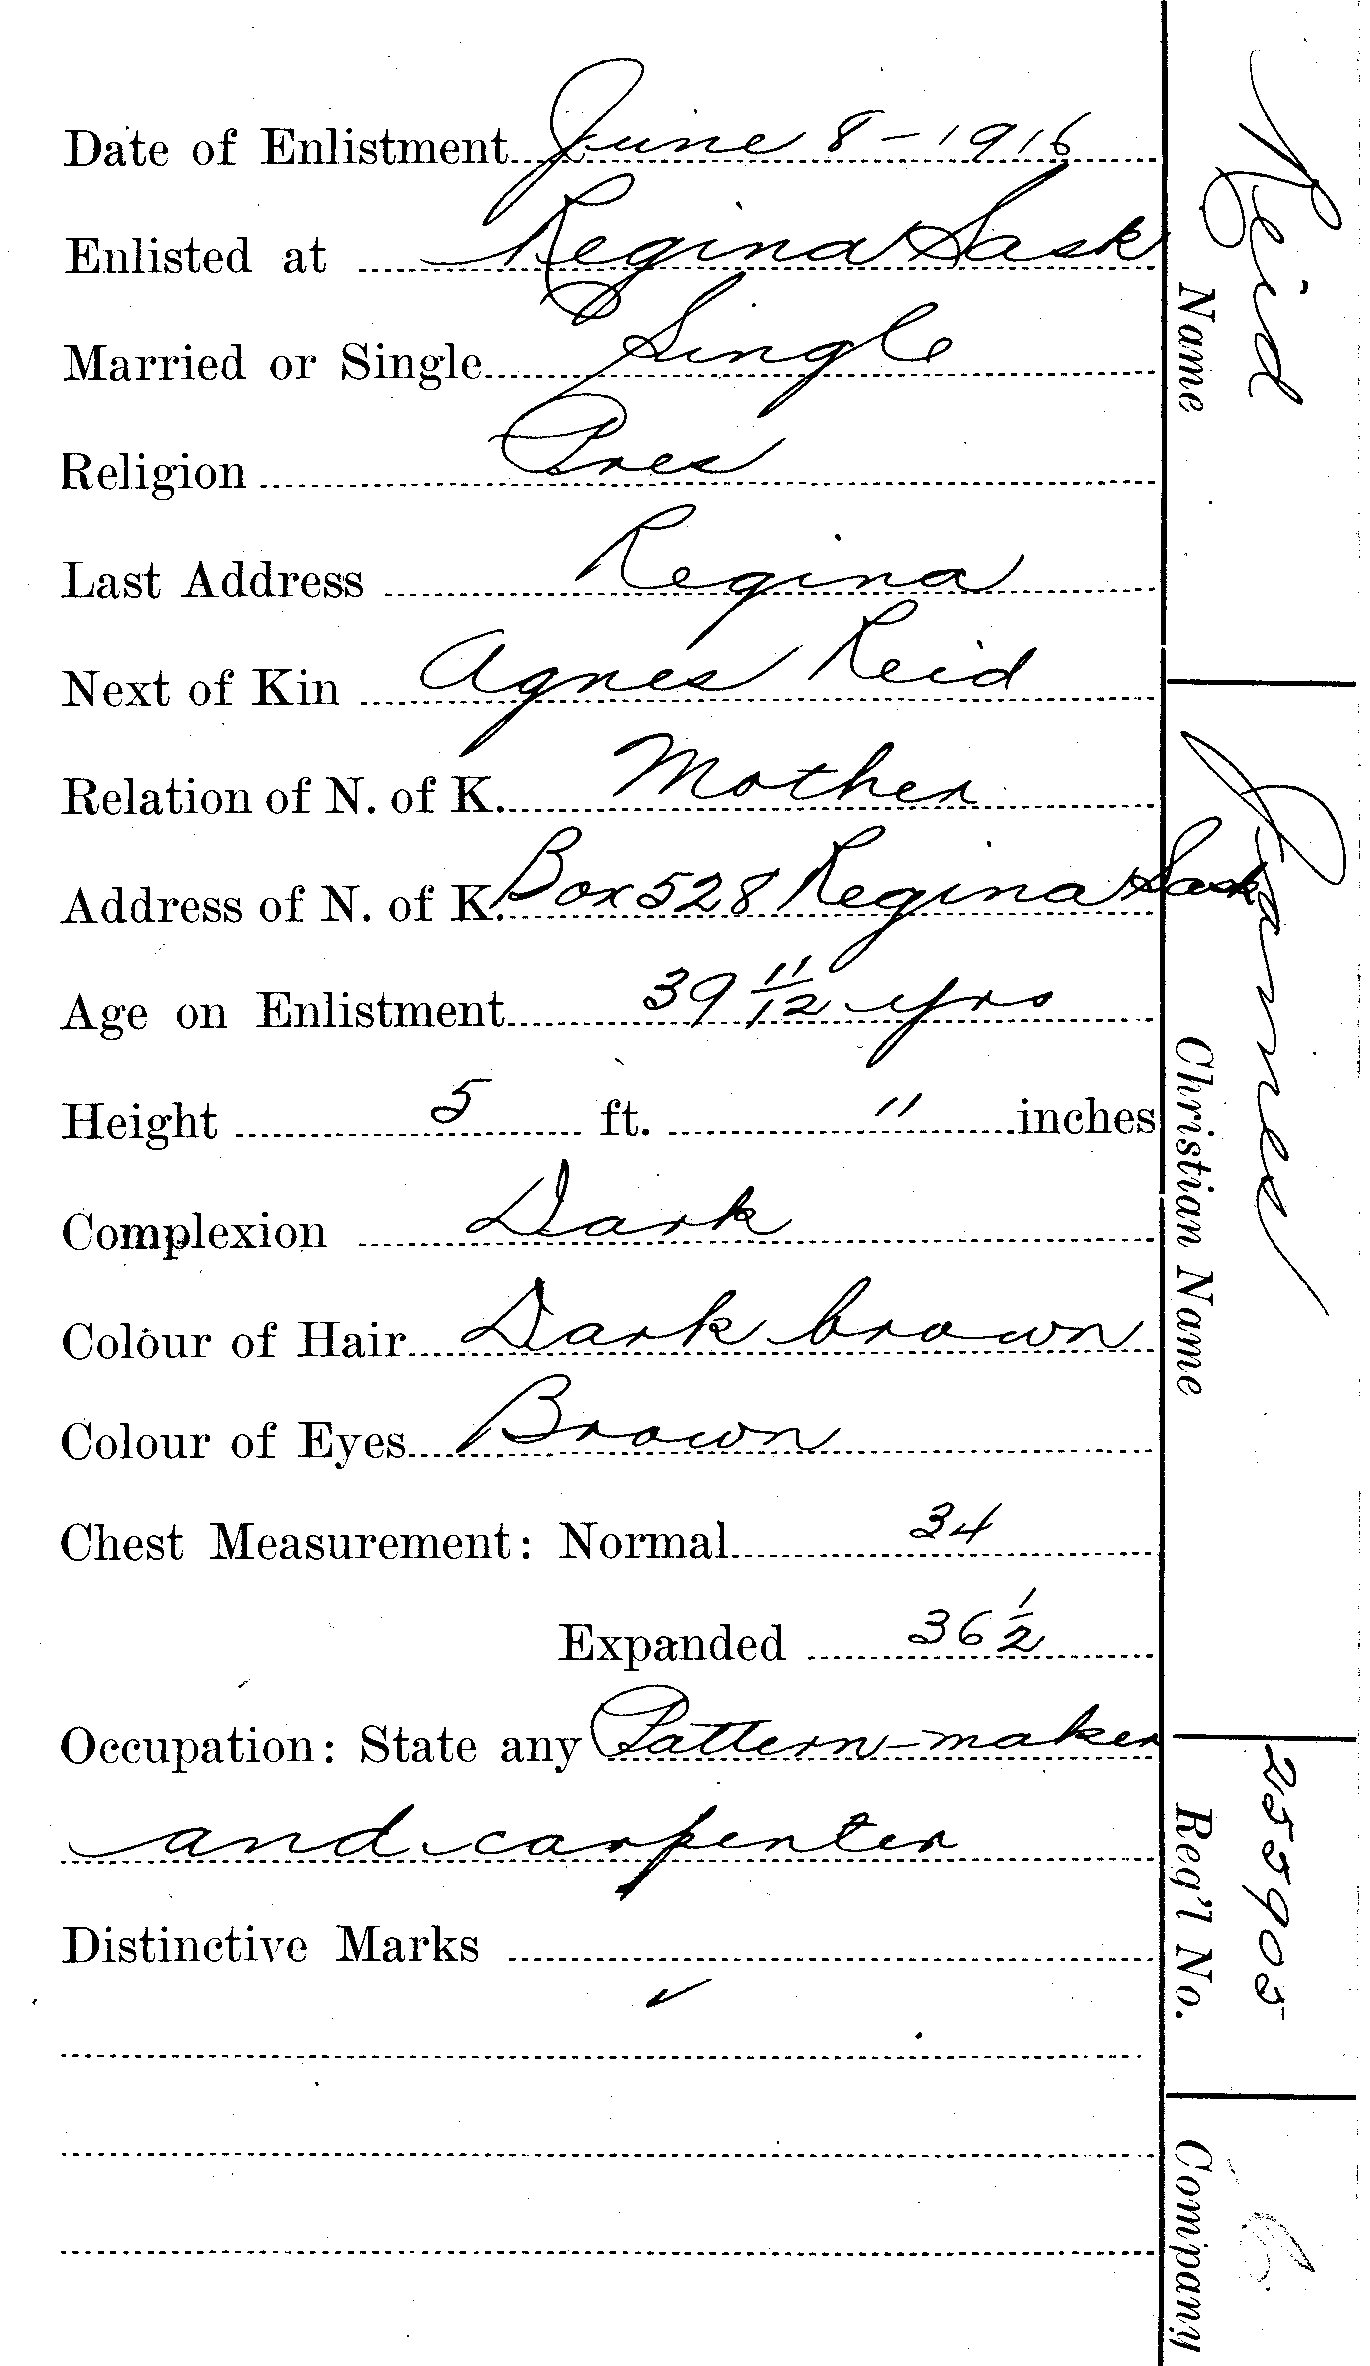 Date of Enlistment June 8-1916
Enlisted at Regina Sask
Married or Single Single
Religion Pres
Last Address Regina
Next of Kin Agnes Reid
Relation of N. of K. Mother
Address of N. of K. Box 528 Regina Sask
Age on Enlistment 39 11/12 yrs
Height 5 ft. 11 inches
Complexion Dark
Colour of Hair Dark brown
Colour of Eyes Brown
Chest Measurement: Normal 34
Expanded 36 1/2
Occupation: State any Pattern-maker
and carpenter
Distinctive Marks
✓
Reid
Name
James
Christian Name
255905
Reg'l No.
Company